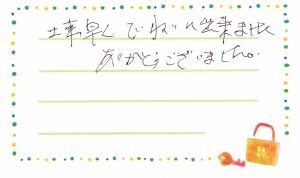 工事早く ていねいに出来ました
ありがとうございました。